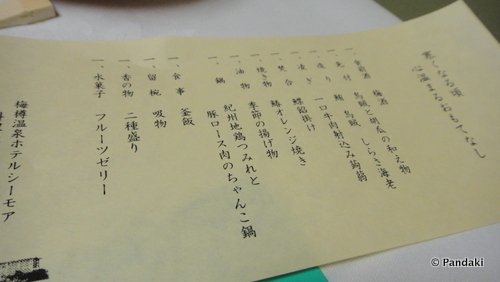 寒くなる頃
心温まるおもてなし
一、食前酒 梅酒
一、先付 烏賊と明太の和え物
一、造り 鮪 烏賊 しらさ海老
一、凌ぎ 一口牛肉射込み蒟蒻
一、焚合 螺餡掛け
一、焼き物 鰆オレンジ焼き
一、油物 季節の揚げ物
一、鍋 紀州地鶏つみれと
豚ロース肉のちゃんこ鍋
一、食事 釜飯
一、留椀 吸物
一、香の物 二種盛り
一、水菓子 フルーツゼリー
梅樽温泉ホテルシーモア
© Pandaki